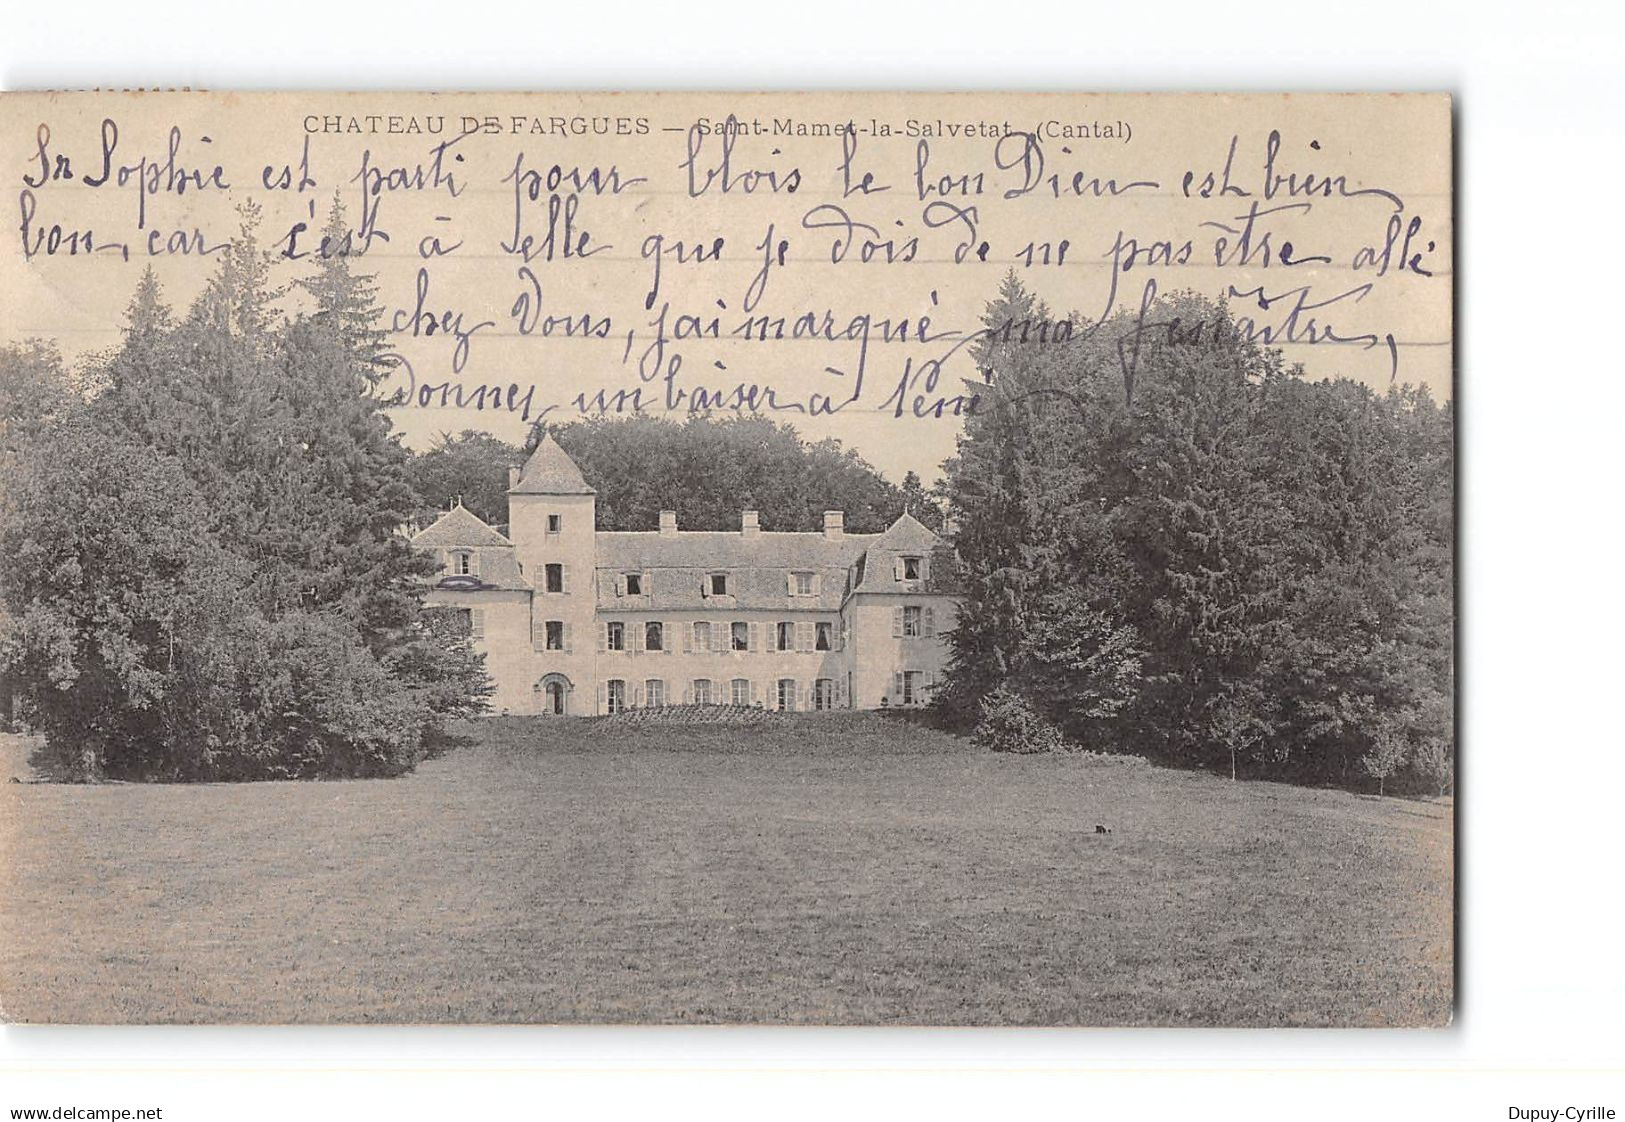 CHATEAU DE FARGUES — Saint-Mamet-la-Salvetat (Cantal)
Sr Sophie est parti pour blois le bon Dieu est bien
bon, car s'est à elle que je dois de ne pas être allé
chez Vous, j'ai marqué ma fenaître,
donney un baiser à Néne
delcampe.net
Dupuy-Cyrille